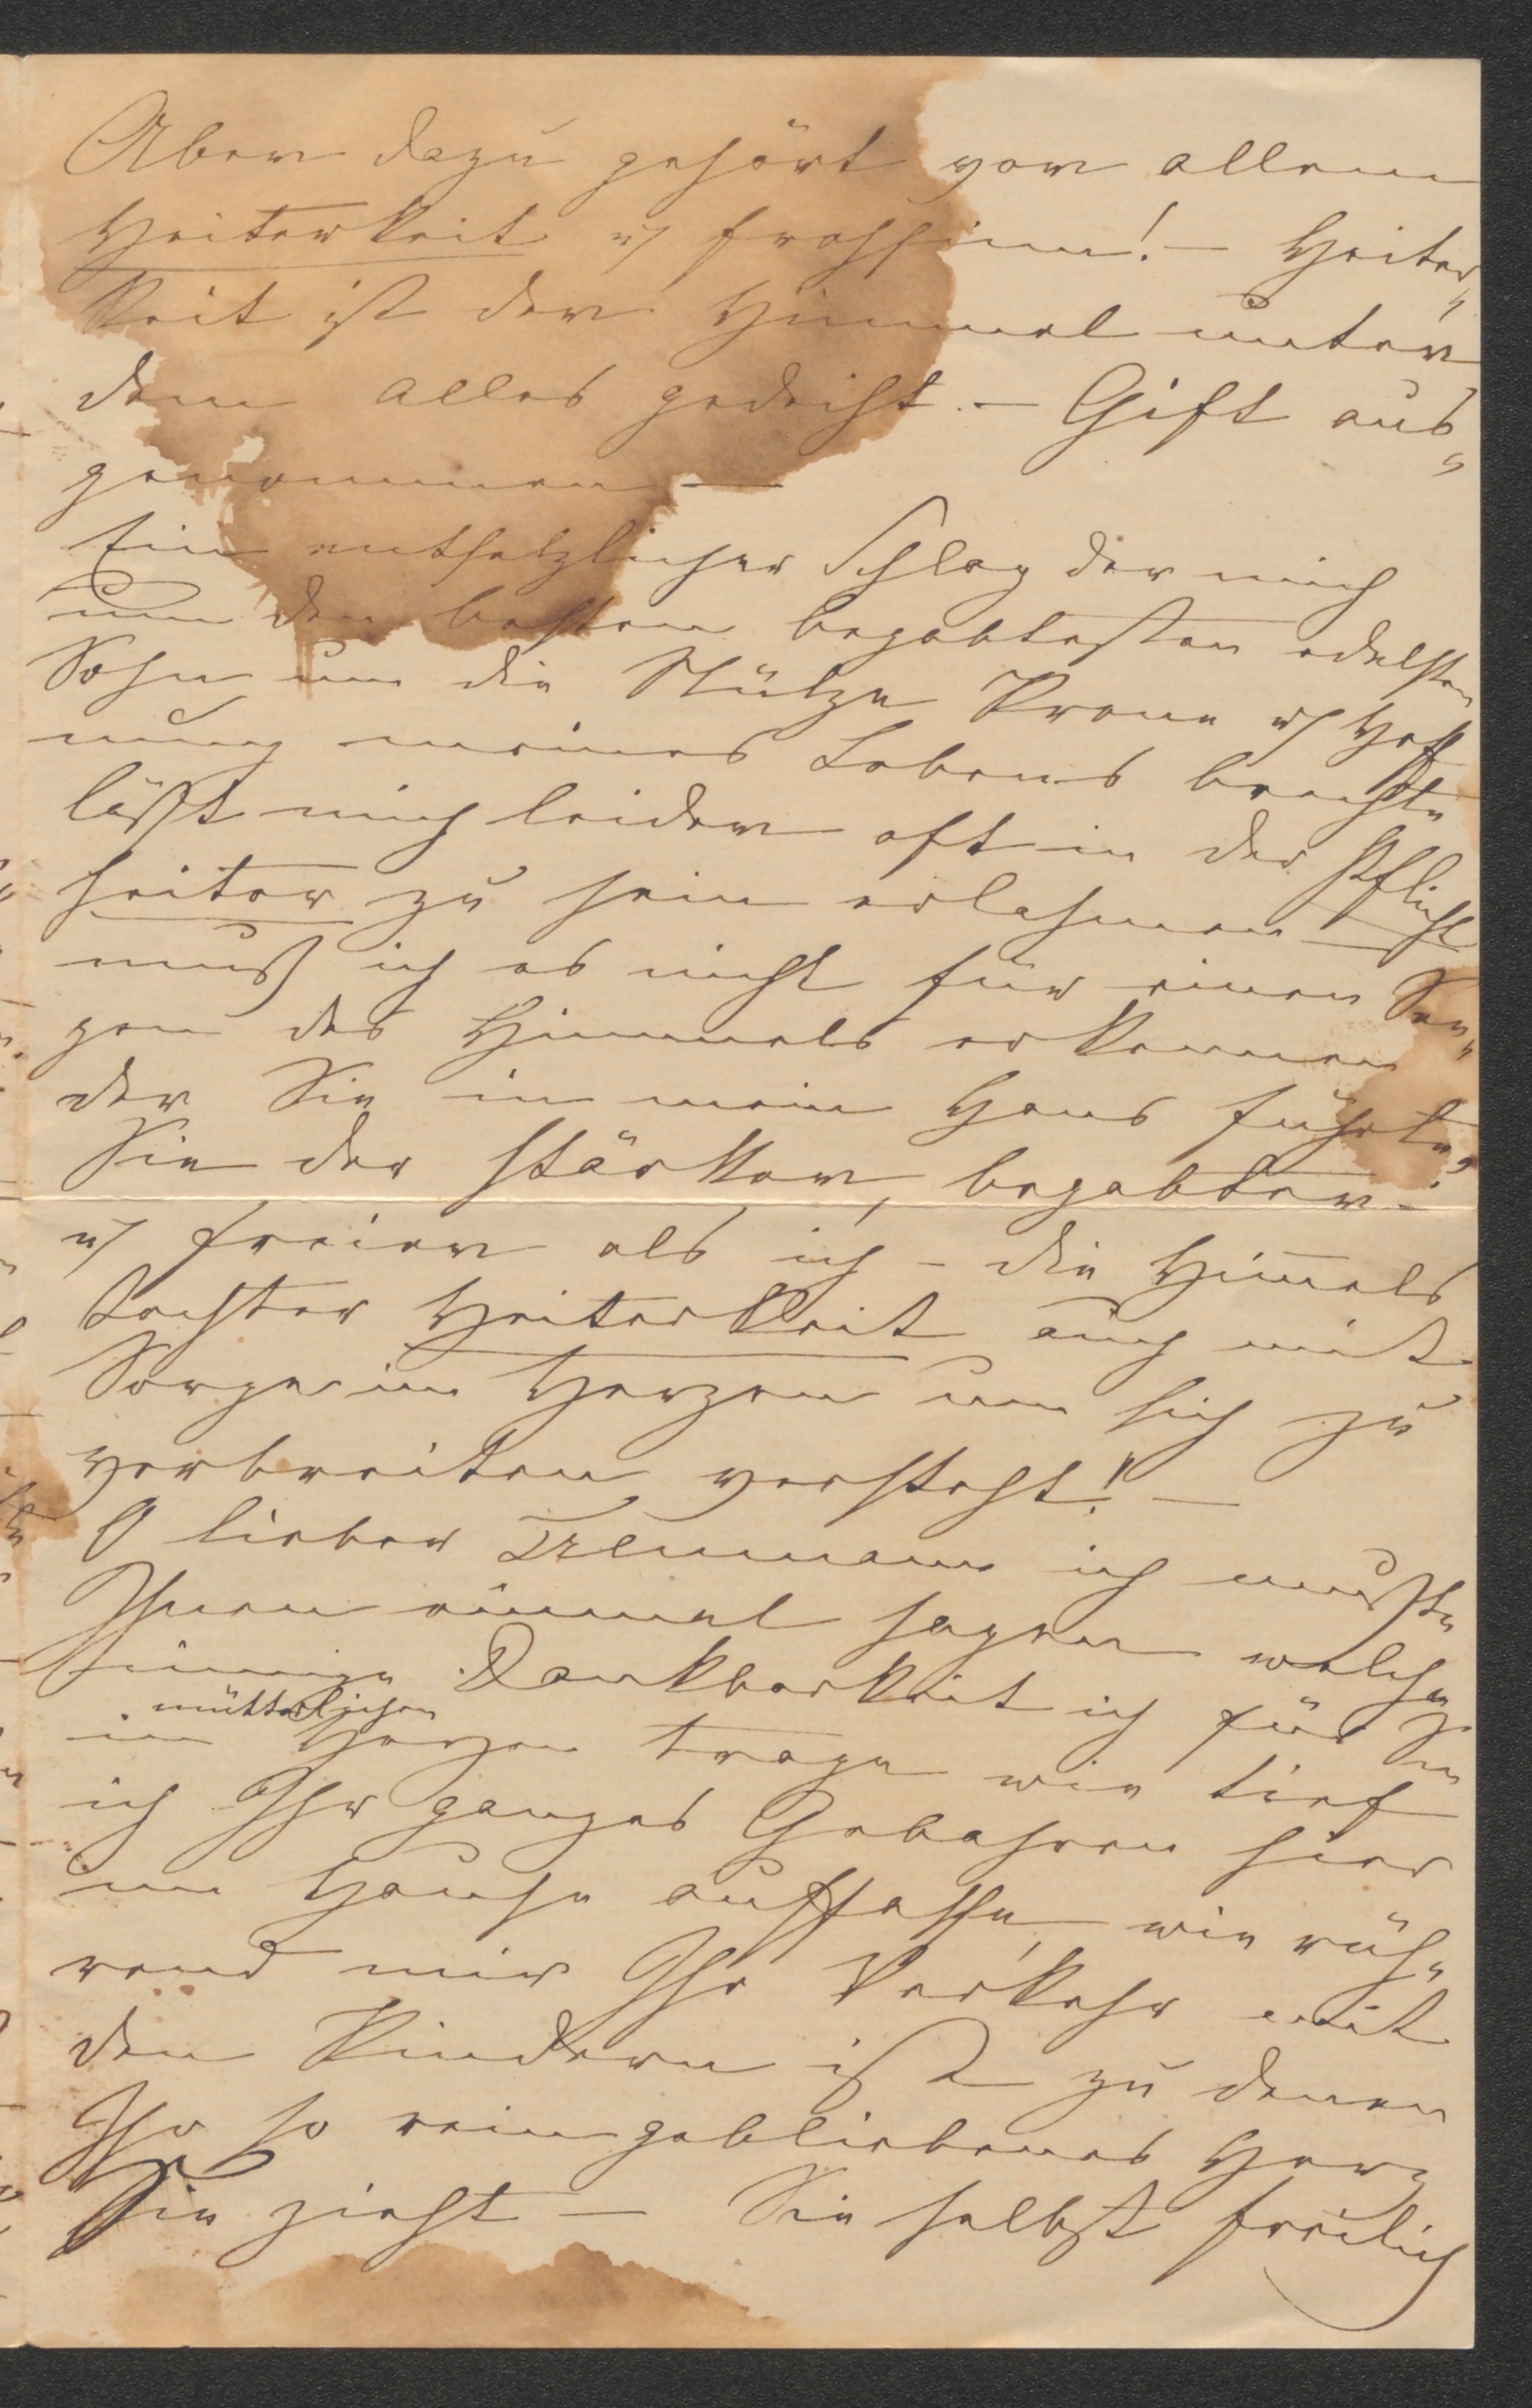 Aber dazu gehört vor allem
Heiterkeit u frohsinn! — Heiter„
keit ist der Himmel unter
dem alles gedeiht. — Gift aus„
genommen —
Ein entsetzlicher Schlag der mich
um den besten begabtesten edelsten
Sohn um die Stütze Krone u Hoff
nung meines Lebens brachte
läßt mich leider oft in der Pflicht
heiter zu sein erlahmen —
muß ich es nicht für einen See„
gen des Himmels erkennen
der Sie in mein Haus führte,
Sie der stärker, begabter
u freier als ich – die Himels
Tochter Heiterkeit auch mit
Sorge im Herzen um sich zu
verbreiten versteht! —
O lieber ich mußte
Ihnen einmal sagen welche
innige Dankbarkeit ich für Sie
im mütterlichen Herzen trage wie tief
ich Ihr ganzes Gebahren hier
im Hause auffasse, wie rüh„
rend mir Ihr Verkehr mit
den Kindern ist zu denen
Ihr so rein gebliebenes Herz
Sie zieht — Sie selbst freilich